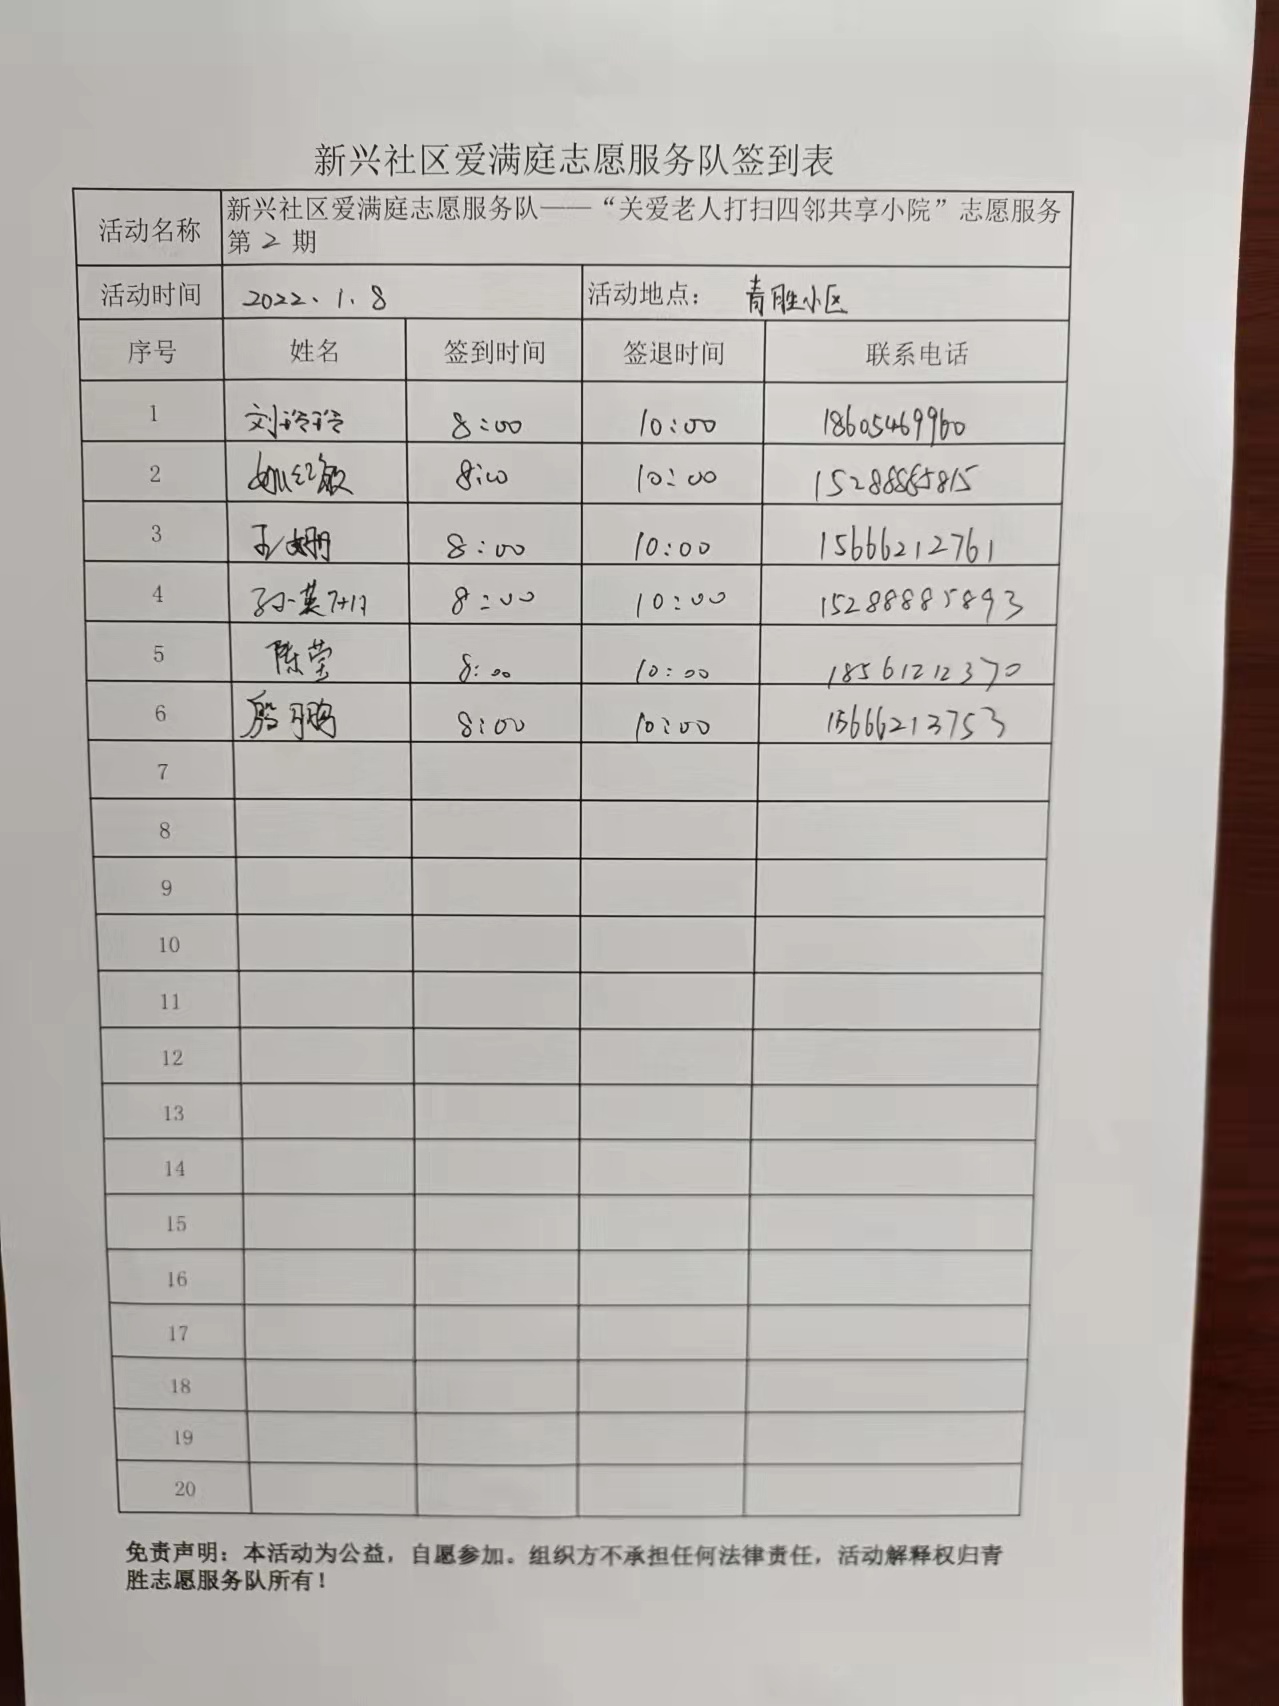 新兴社区爱满庭志愿服务队签到表
活动名称 新兴社区爱满庭志愿服务队——“关爱老人打扫四邻共享小院”志愿服务
第 2 期
活动时间 2022、1、8 活动地点： 青胜小区
序号 姓名 签到时间 签退时间 联系电话
1 刘玲玲 8:00 10:00 18605469960
2 姚红敏 8:00 10:00 15288865815
3 王姗 8:00 10:00 15666212761
4 孙英 8:00 10:00 15288885893
5 陈莹 8:00 10:00 18561212370
6 殷鹏 8:00 10:00 15666213753
7
8
9
10
11
12
13
14
15
16
17
18
19
20
免责声明：本活动为公益，自愿参加。组织方不承担任何法律责任，活动解释权归青
胜志愿服务队所有！